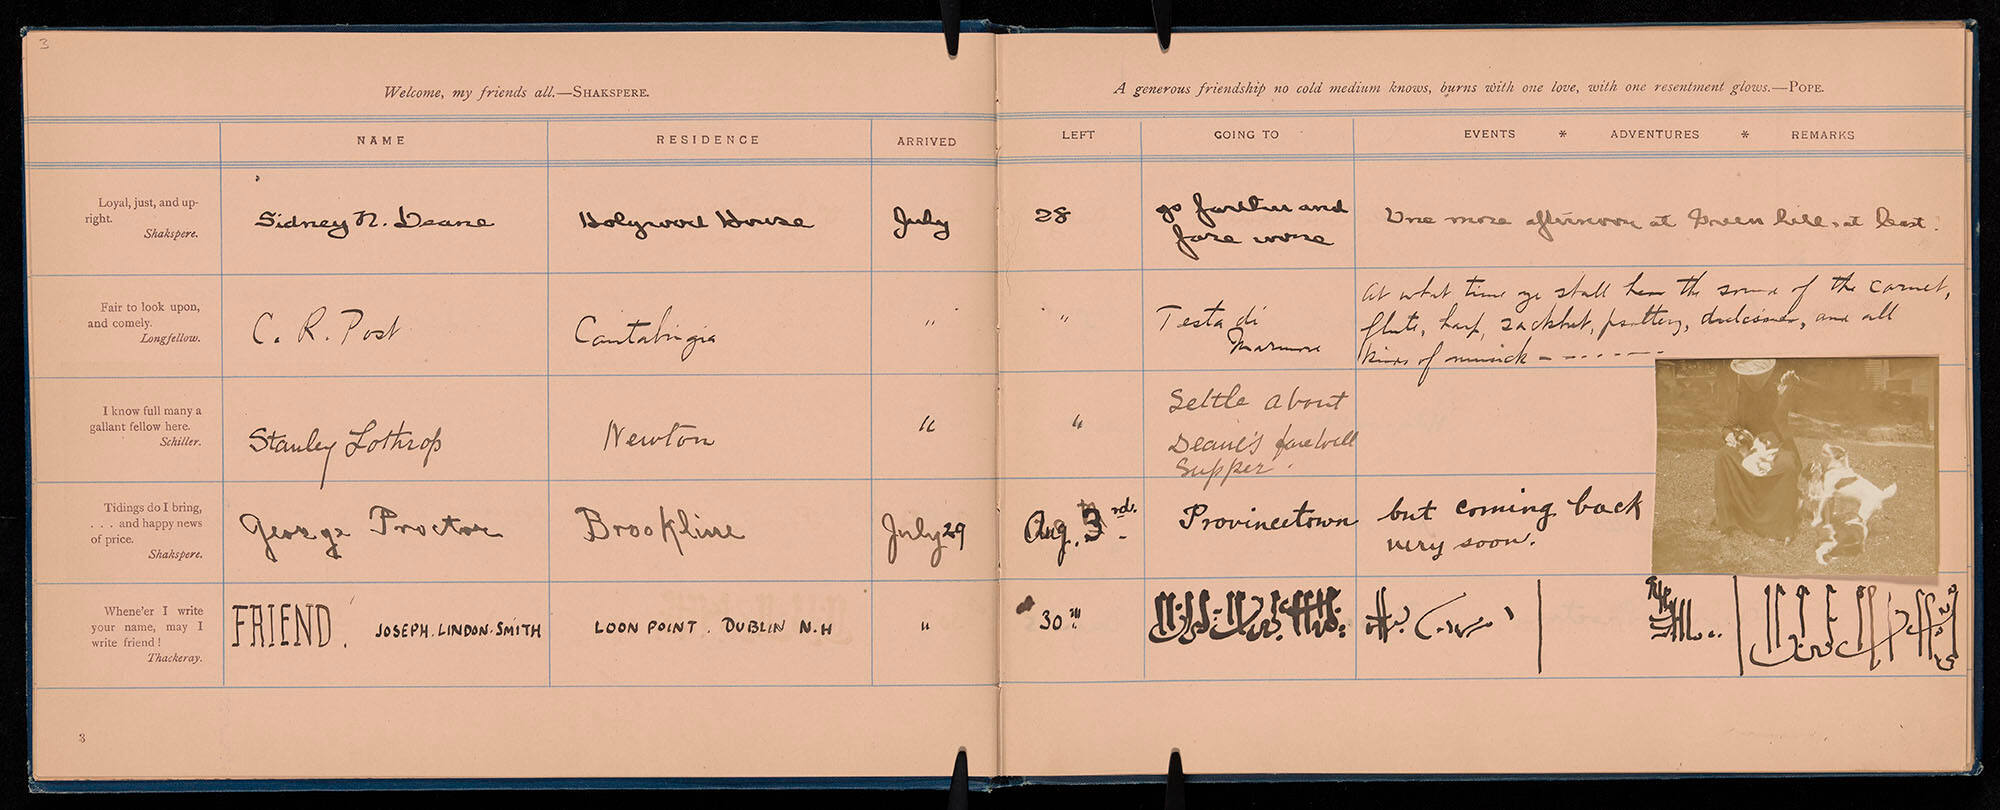 3
Welcome, my friends all.—SHAKSPERE.
A generous friendship no cold medium knows, burns with one love, with one resentment glows.—POPE.
NAME RESIDENCE ARRIVED LEFT GOING TO EVENTS * ADVENTURES * REMARKS
Loyal, just, and up-
right.
Shakspere.
Sidney N. Deane
Holywood House
July
28
go farther and
fare worse
One more afternoon at Green hill, at least.
Fair to look upon,
and comely.
Longfellow.
C. R. Post
Cantabrigia
"
"
Testa di
Marmore
At what time ye shall hear the sound of the cornet,
flute, harp, sackbut, psaltery, dulcimer, and all
kinds of musick
I know full many a
gallant fellow here.
Schiller.
Stanley Lothrop
Newton
"
"
Settle about
Deane's farewell
Supper.
Tidings do I bring,
. . . and happy news
of price.
Shakspere.
George Proctor
Brookline
July 29
Aug. 3rd.
Provincetown
but coming back
very soon.
Whene'er I write
your name, may I
write friend!
Thackeray.
FRIEND!
JOSEPH. LINDON. SMITH
LOON POINT. DUBLIN N.H
"
30th
3